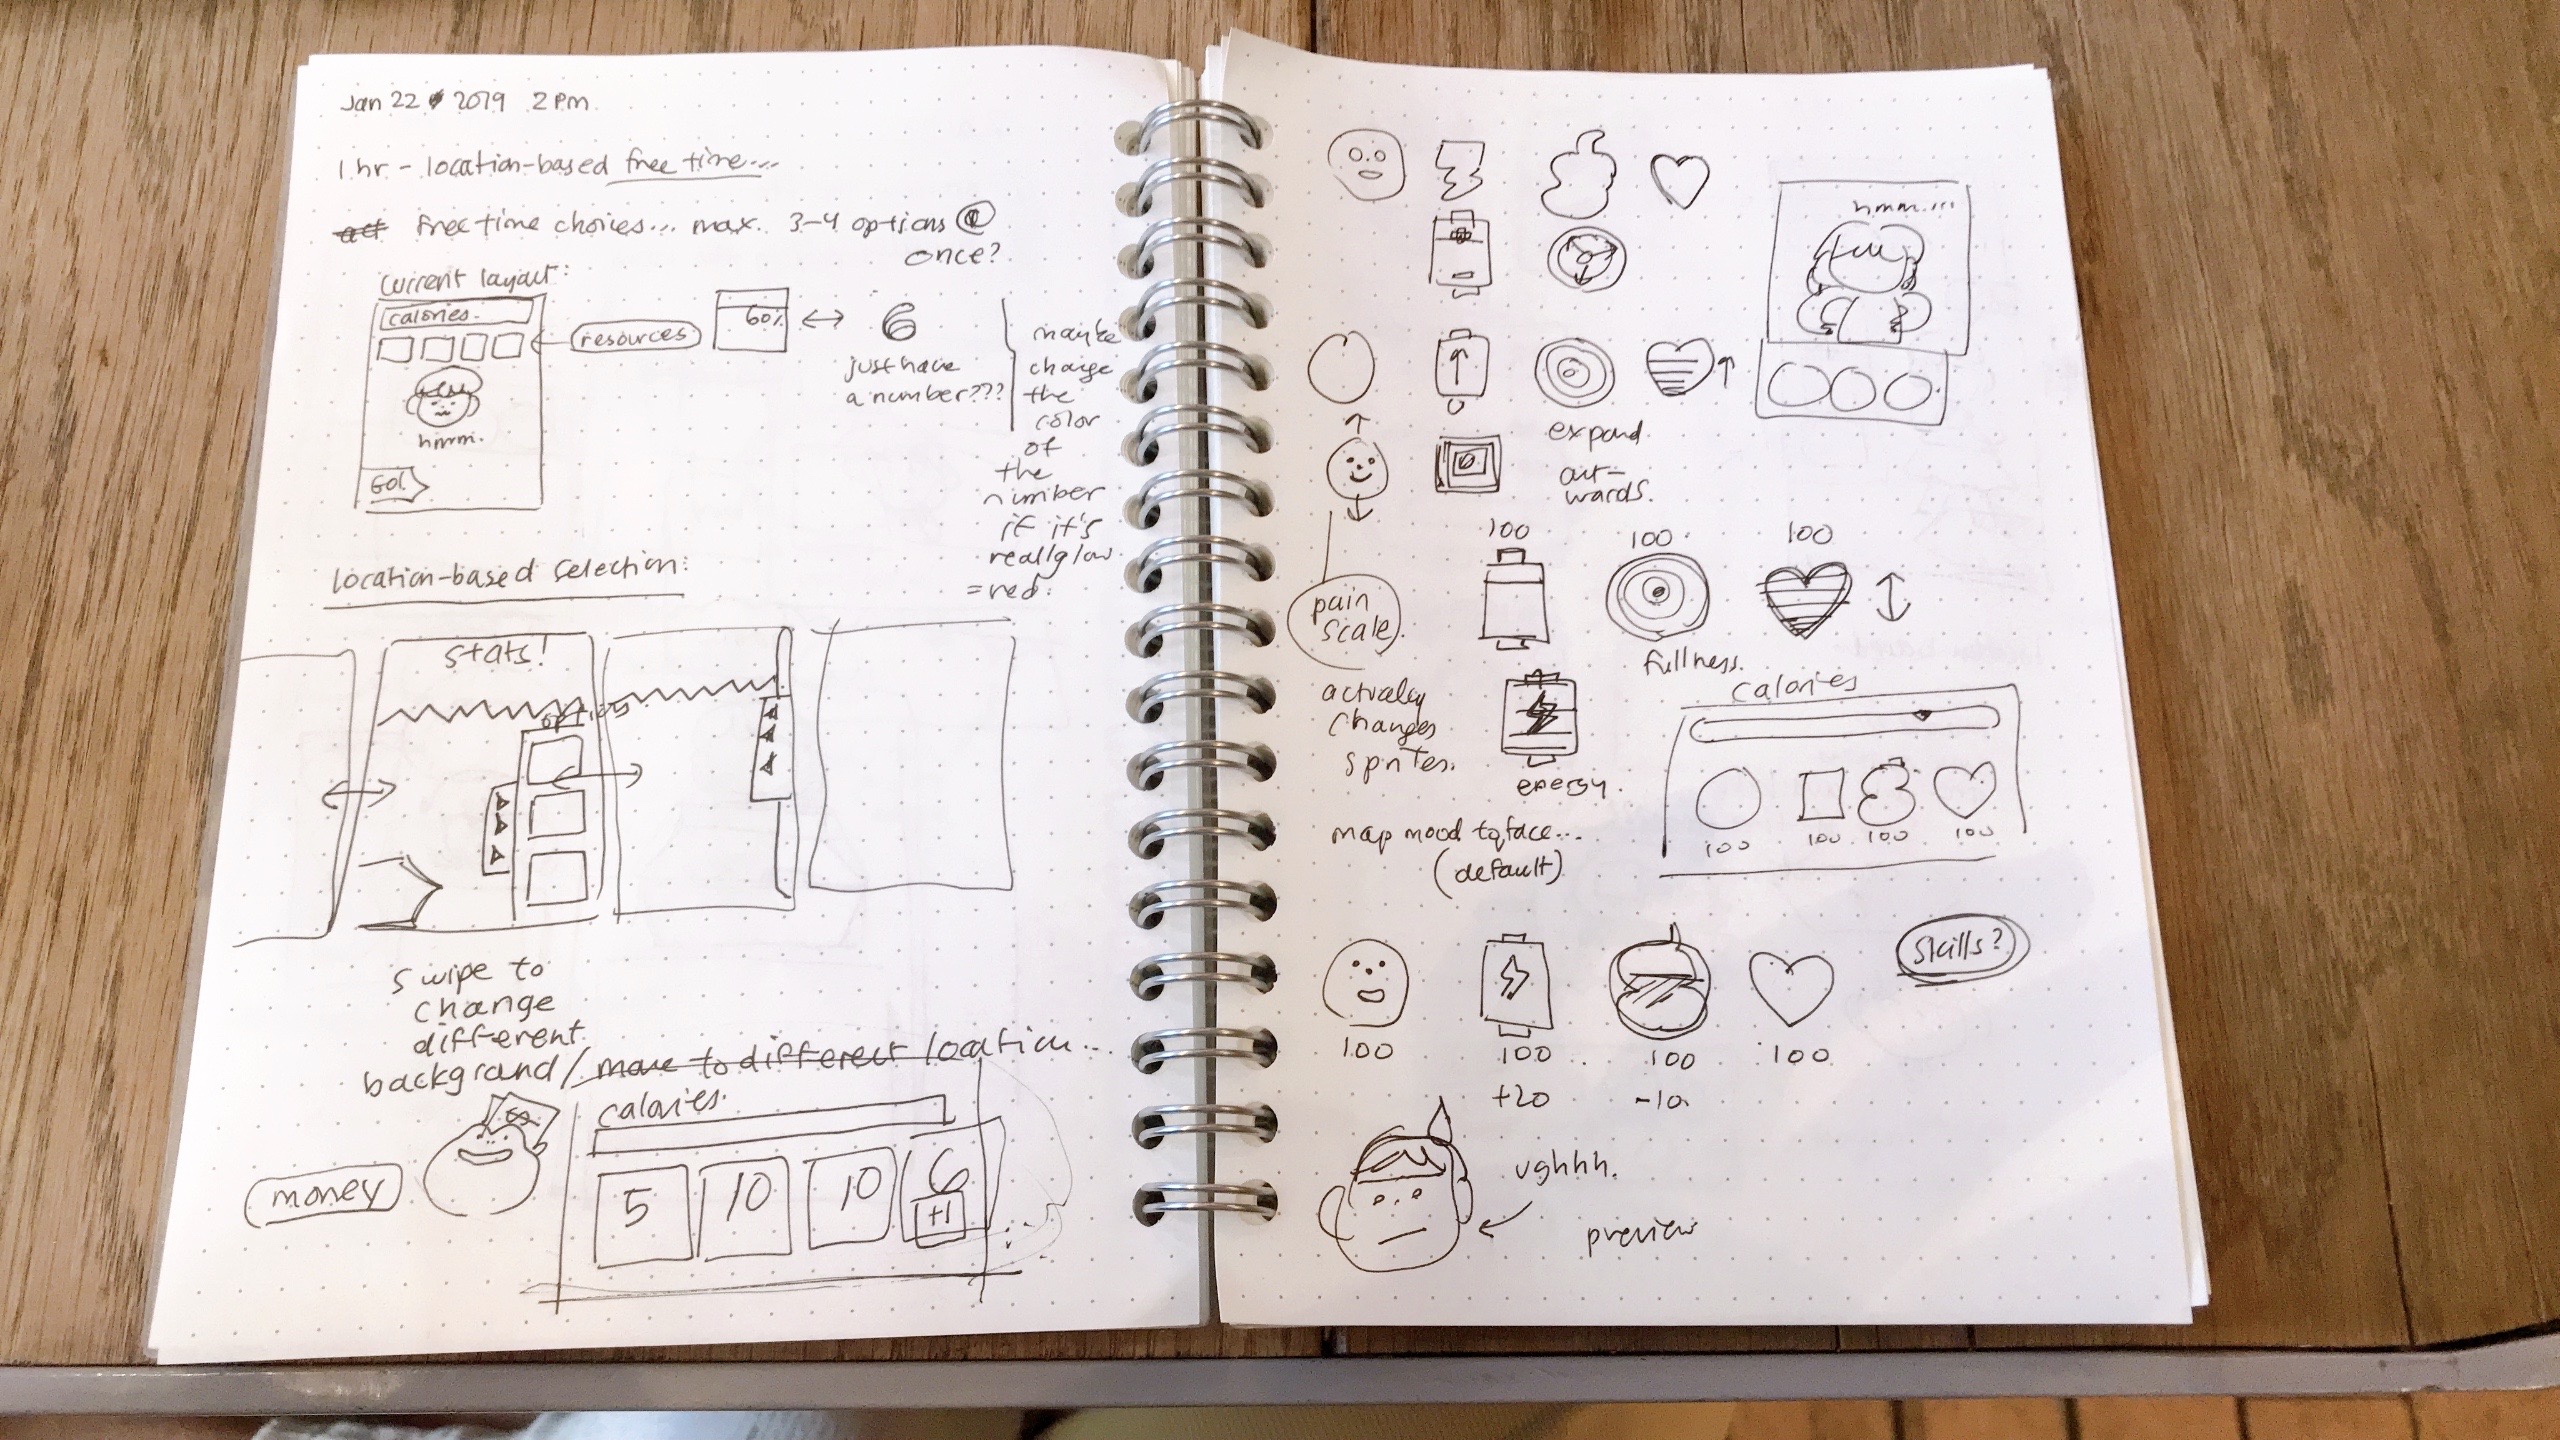 Jan 22 2019 2pm
1 hr - location-based free time...
act free time choices... max. 3-4 options @
once?
current layout:
calories.
resources
60%
6
just have
a number???
maybe
change
the
color
of
the
number
if it's
really low
= red.
hmm.
GO!
location-based selection:
stats!
options
swipe to
change
different
background/move to different location...
money
calories.
5
10
10
6
+1
hmm...
expand
out-
wards.
100
100
100
pain
scale.
fullness.
actually
changes
sprites.
energy.
calories
100
100
100
100
map mood to face...
(default)
skills?
100
100
100
100
+20
-10
ughhh.
preview